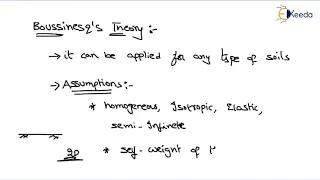 Ekeeda
Boussinesq's Theory :-
→ it can be applied for any type of soils
→ Assumptions :-
* homogeneous, Isotropic, Elastic,
semi-Infinite
20 * self-weight of t